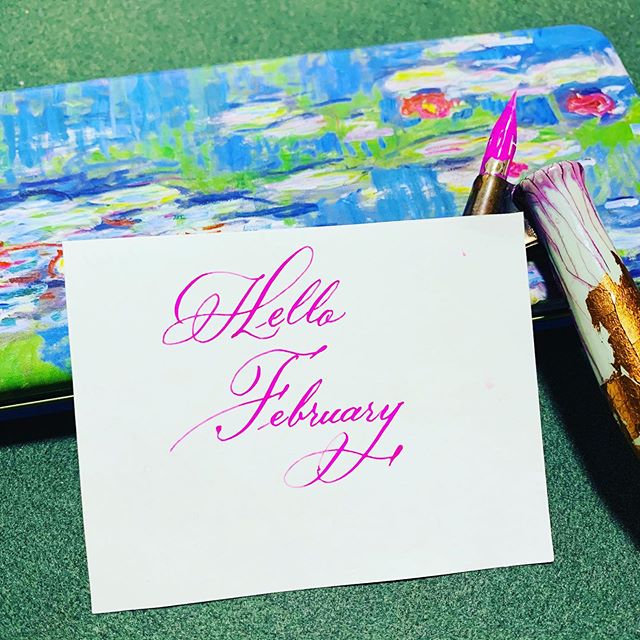 Hello
February